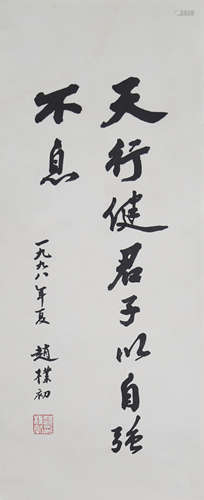 天行健君子以自强
不息
一九九八年夏 趙樸初